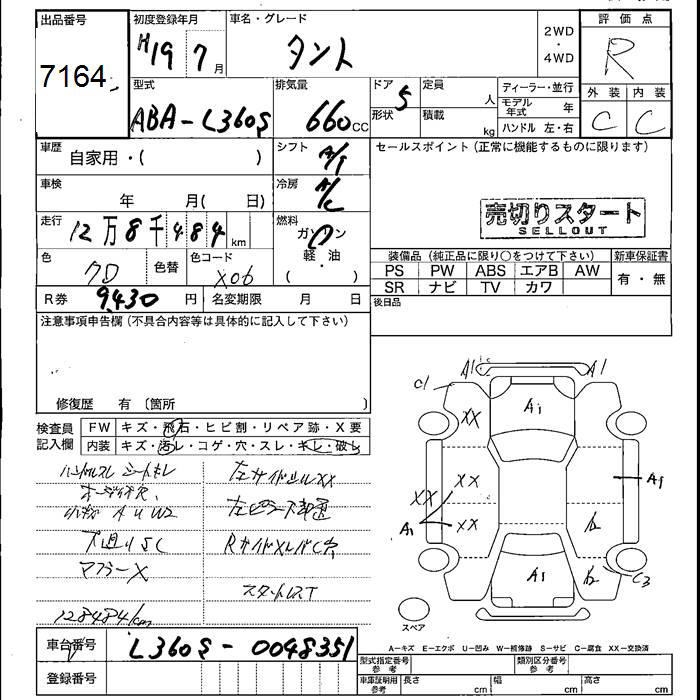 出品番号
7164
初度登録年月
H19 7月
車名・グレード
タント
2WD
・
4WD
評価点
R
型式
ABA-L360S
排気量
660CC
ドア
5
形状
定員
人
積載
kg
ディーラー・並行
モデル年式 年
ハンドル 左・右
外装 内装
C C
車歴
自家用・( )
シフト
A/T
セールスポイント(正常に機能するものに限ります)
車検
年 月( 日)
冷房
A/C
売切りスタート
SELLOUT
走行
12万8千484km
燃料
ガソリン
軽・油
( )
色
クロ
色替
色コード
X06
装備品(純正品に限り○をつけて下さい)
新車保証書
PS PW ABS エアB AW
SR ナビ TV カワ
有・無
R券
9,430円
名変期限 月 日
後日品
注意事項申告欄(不具合内容等は具体的に記入して下さい)
修復歴 有(箇所 )
検査員記入欄
FW キズ・飛石・ヒビ割・リペア跡・X要
内装 キズ・汚レ・コゲ・穴・スレ・キレ・破レ
ハンドルスレ シートキレ
左サイドシルXX
小キズ A U W2
下廻りSC
マフラーX
スタットレスT
128484km
A1 A1
C1
XX
A1
XX
XX
XX
A1
A1
A1
C3
スペア
A-キズ E-エクボ U-凹み W-補修跡 S-サビ C-腐食 XX-交換済
車台番号
L360S-0048351
登録番号
型式指定番号
参考
類別区分番号
参考
車庫証明用
参考
長さ cm 幅 cm 高さ cm